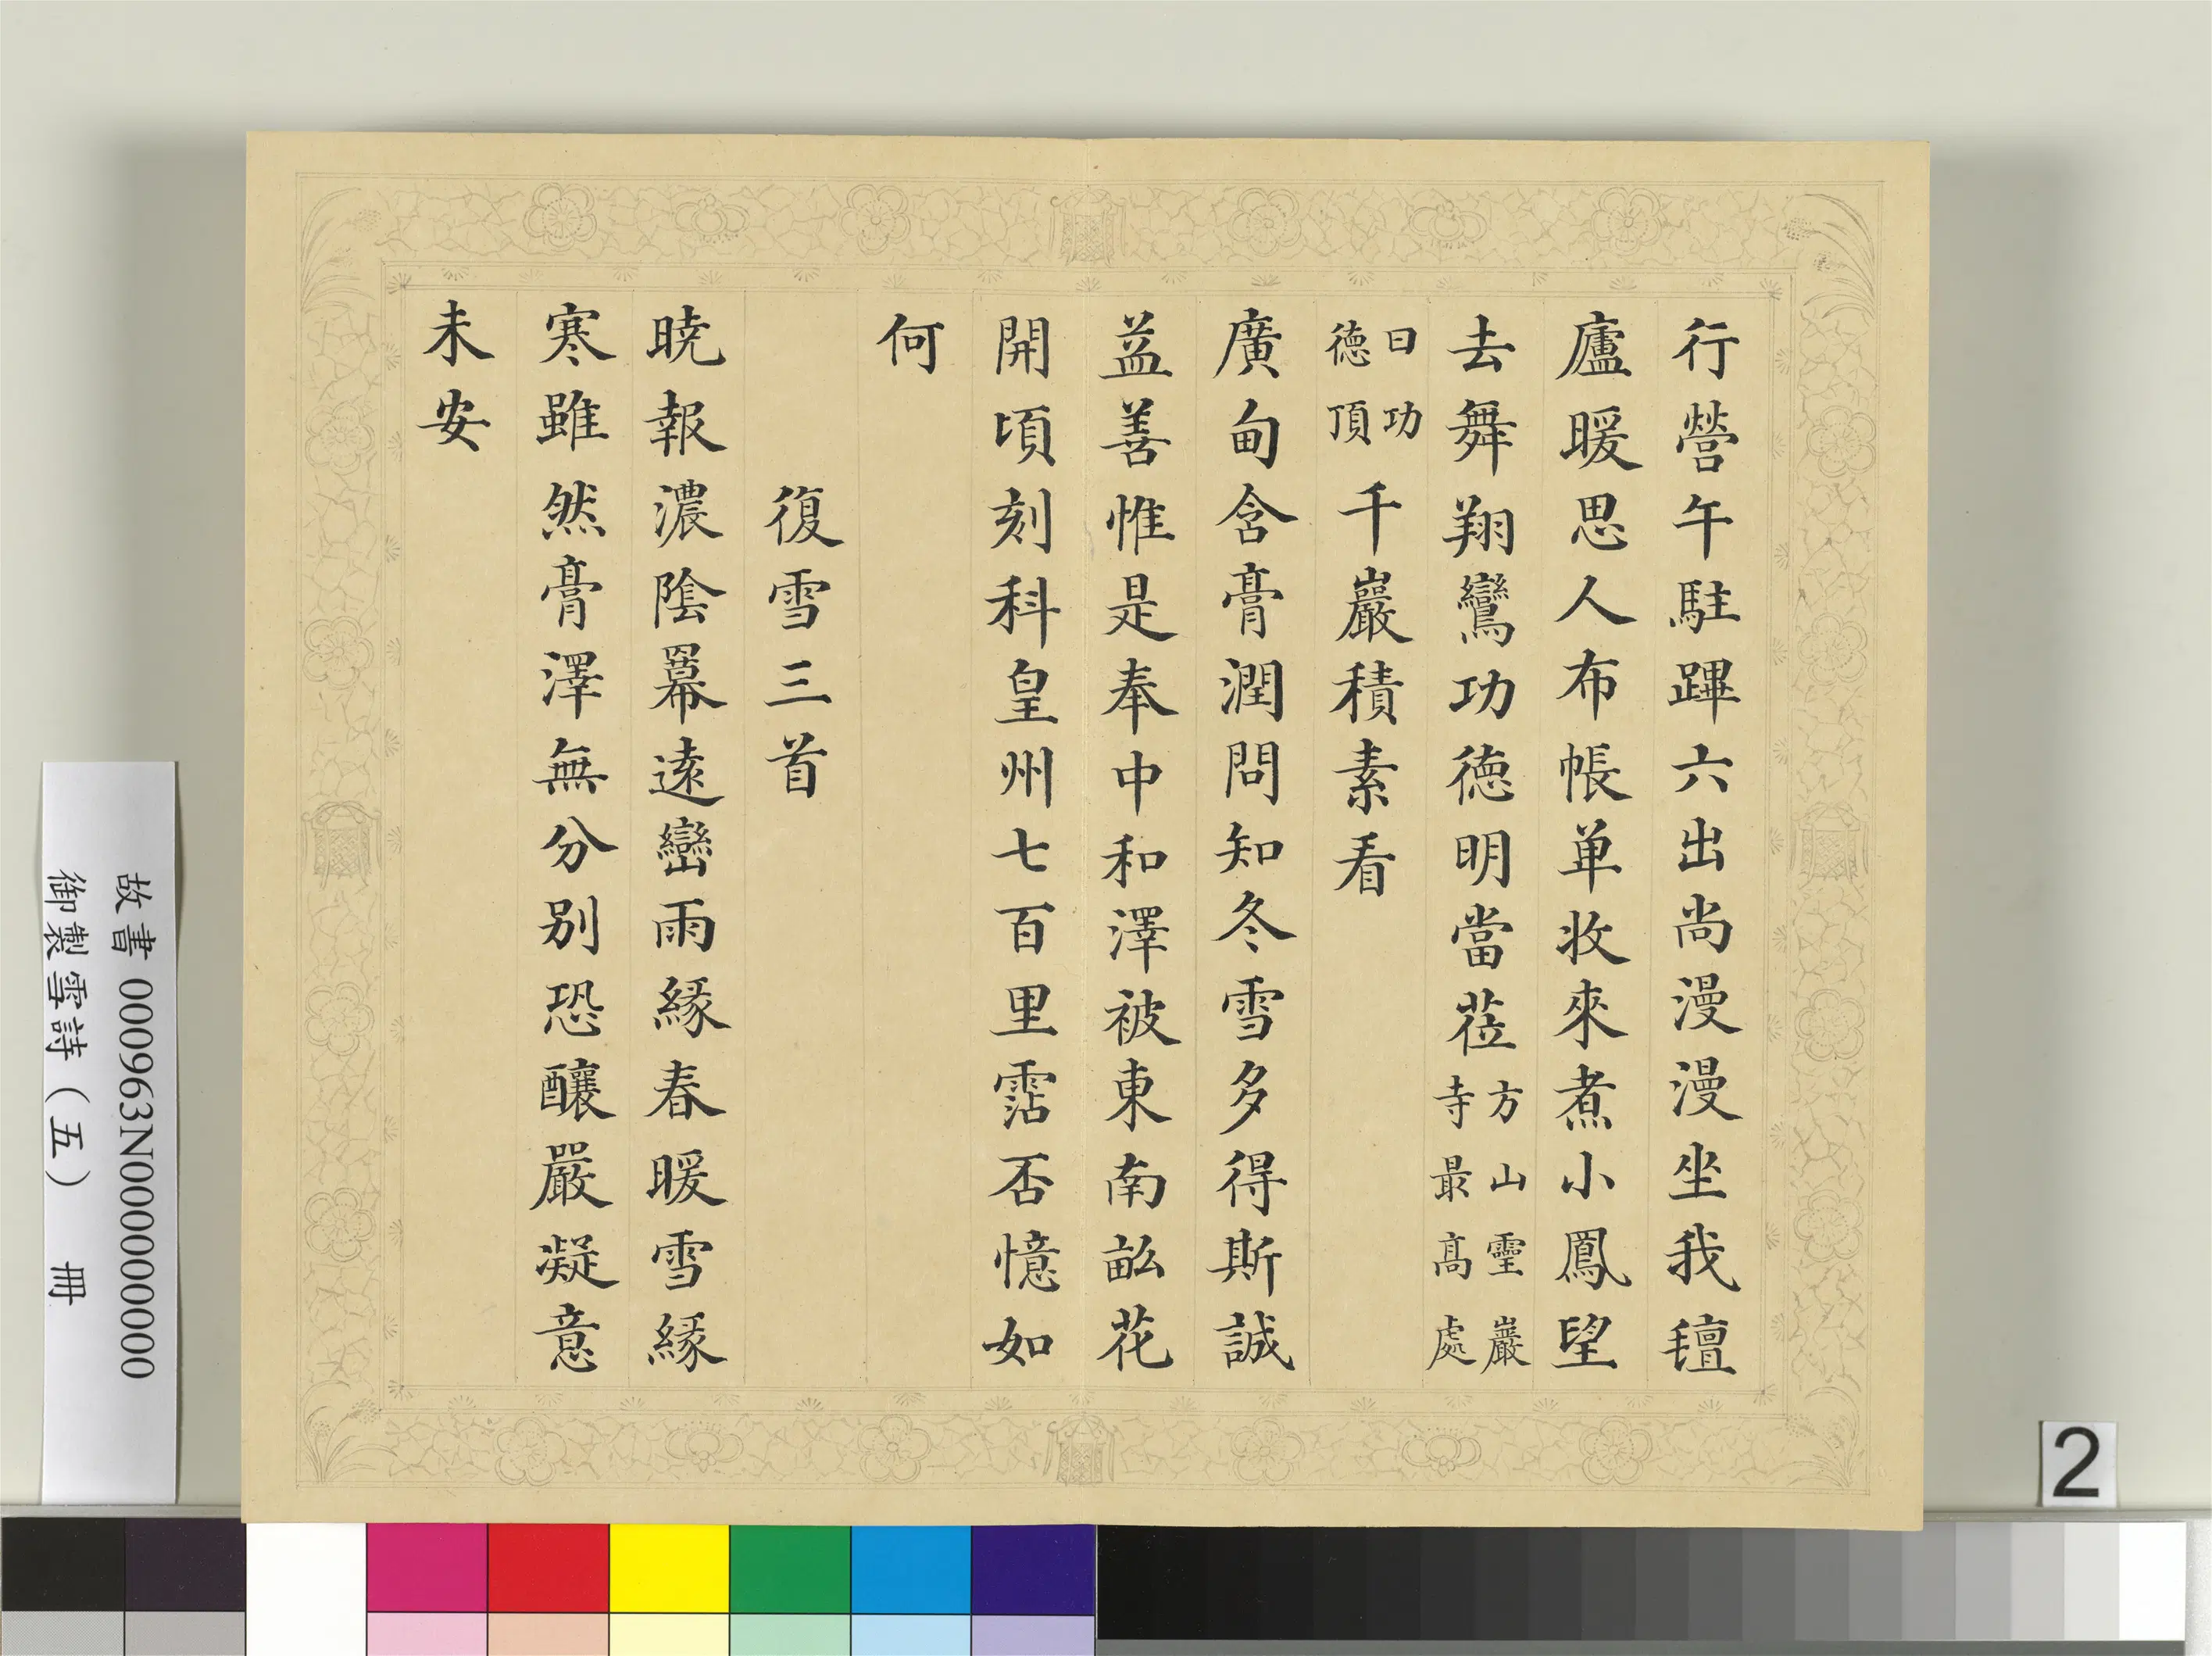 行營午駐蹕六出尚漫漫坐我氊
廬暖思人布帳单收來煮小鳳望
去舞翔鸞功徳明當莅方山靈巖寺最髙處
曰功徳頂千巖積素看
廣甸含膏潤問知冬雪多得斯誠
益善惟是奉中和澤被東南畝花
開頃刻科皇州七百里霑否憶如
何
復雪三首
暁報濃陰羃遠巒雨緣春暖雪緣
寒雖然膏澤無分别恐釀嚴凝意
未安
故書 000963N000000000
御製雪詩（五） 冊
2